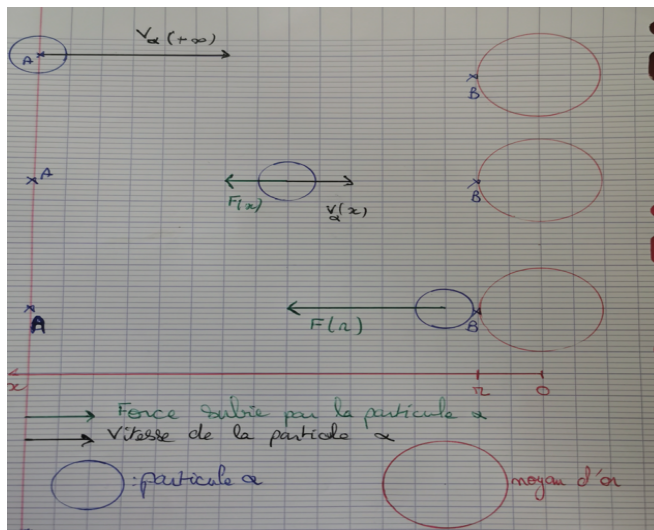 V_α(+∞)
A
B
A
F(x)
V_α(x)
B
A
F(r)
B
x
r
0
Force subie par la particule α
Vitesse de la particle α
: particule α
noyau d'or